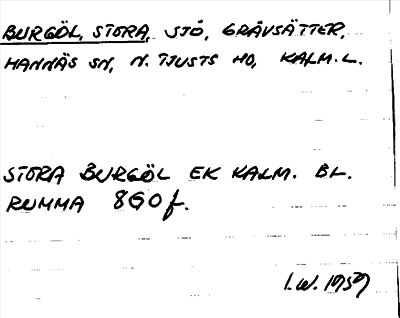 BURGÖL, STORA, SJÖ, GRÅVSÄTTER,
HANNÄS SN, N. TJUSTS HD, KALM. L.
STORA BURGÖL EK KALM. BL.
RUMMA 8G0f.
I.W. 1959